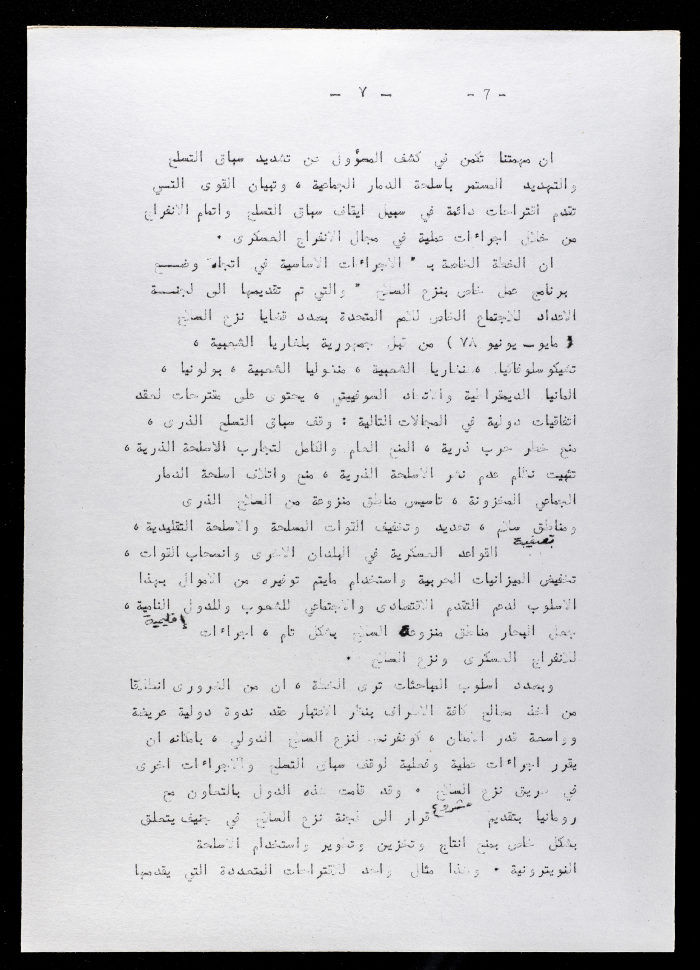 - ٧ - - 7 -
ان مهمتنا تكمن في كشف المسؤول عن تشديد سباق التسلح
والتهديد المستمر باسلحة الدمار الجماعية ، وتبيان القوى التسي
تقدم اقتراحات دائمة في سبيل ايقاف سباق التسلح واتمام الانفراج
من خلال اجراءات عملية في مجال الانفراج العسكرى .
ان الخطة الخاصة بـ " الاجراءات الاساسية في اتجاه وضـــع
برنامج عمل خاص بنزع السلاح " والتي تم تقديمها الى لجنـــة
الاعداد للاجتماع الخاص للامم المتحدة بصدد قضايا نزع السلاح
( مايو - يونيو ٧٨ ) من قبل جمهورية بلغاريا الشعبية ،
تشيكوسلوفاكيا ، هنغاريا الشعبية ، منغوليا الشعبية ، بولونيا ،
المانيا الديمقراطية والاتحاد السوفييتي ، يحتوى على مقترحات لعقد
اتفاقيات دولية في المجالات التالية : وقف سباق التسلح الذرى ،
منع خطر حرب ذرية ، المنع العام والكامل لتجارب الاسلحة الذرية ،
تثبيت نظام عدم نشر الاسلحة الذرية ، منع واتلاف اسلحة الدمار
الجماعي المخزونة ، تاسيس مناطق منزوعة من السلاح الذرى
ومناطق سلام ، تحديد وتخفيف القوات المسلحة والاسلحة التقليدية ،
تصفية القواعد العسكرية في البلدان الاخرى وانسحاب القوات ،
تخفيض الميزانيات الحربية واستخدام مايتم توفيره من الاموال بهذا
الاسلوب لدعم التقدم الاقتصادى والاجتماعي للشعوب وللدول النامية ،
جعل البحار مناطق منزوعة السلاح بشكل تام ، اجراءات اقليمية
للانفراج العسكرى ونزع السلاح .
وبصدد اسلوب المباحثات ترى الخطة ، ان من الضرورى انطلاقا
من اخذ مصالح كافة الاطراف بنظر الاعتبار عقد ندوة دولية عريضة
وواسعة قدر الامكان ، كونفرنس لنزع السلاح الدولي ، بامكانه ان
يقرر اجراءات عملية وفعلية لوقف سباق التسلح والاجراءات اخرى
في طريق نزع السلاح . وقد قامت هذه الدول بالتعاون مع
رومانيا بتقديم مشروع قرار الى لجنة نزع السلاح في جنيف يتعلق
بشكل خاص بمنع انتاج وتخزين وتطوير واستخدام الاسلحة
النويترونية . وهذا مثال واحد للاقتراحات المتعددة التي يقدمها